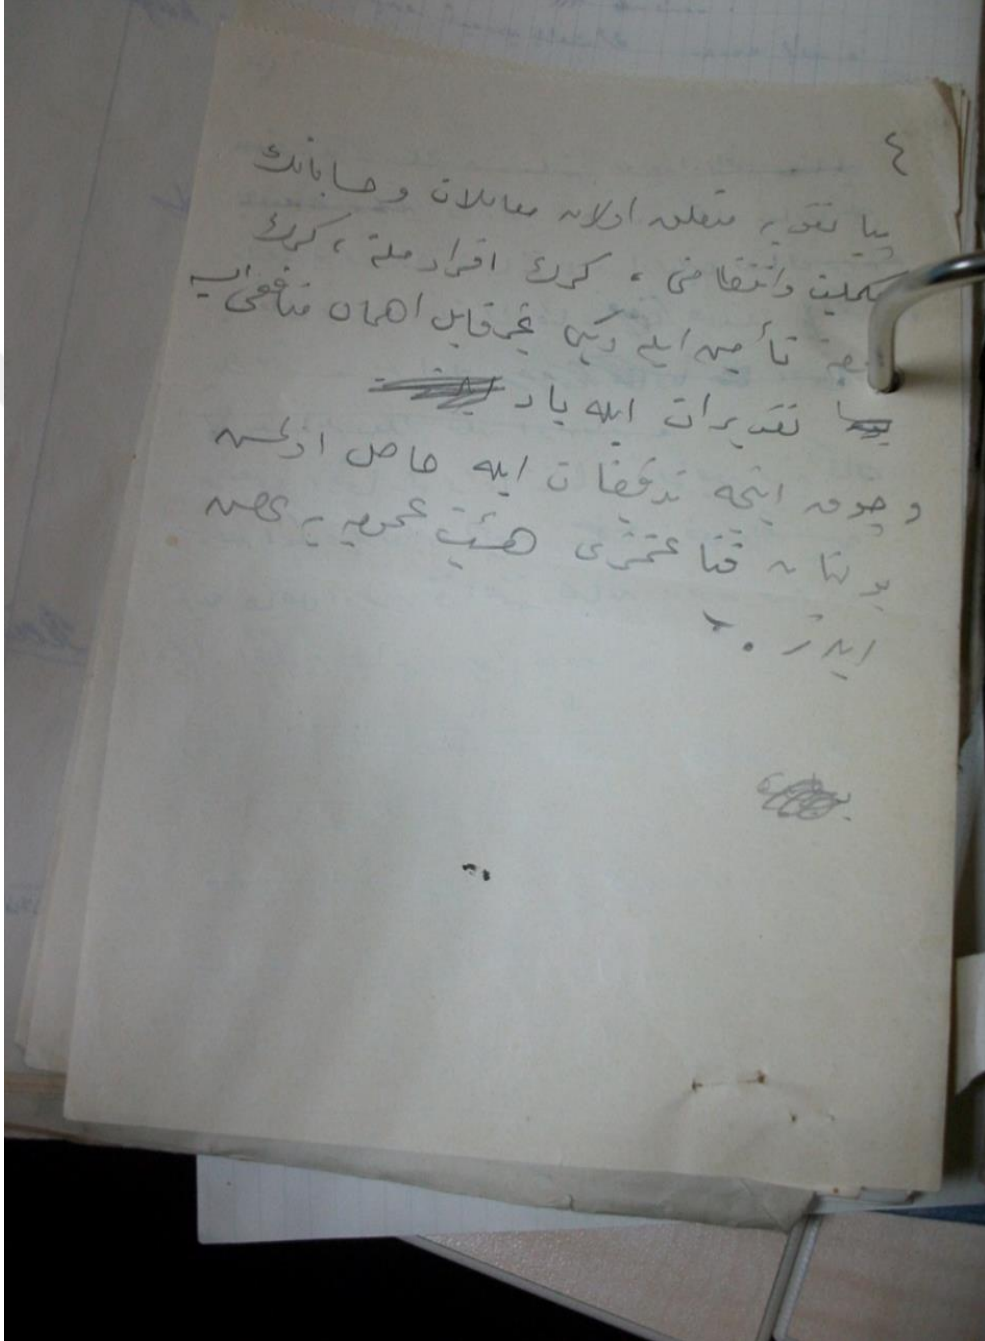 ٤
پيا نقويه متعلق اولان معاملات و حساباتك
مكمليت وانتظامى ، كرك افراد ملته ، كرك
تأمين ايله ديكى غيرقابل اهمال منافعى
تقديرات ايله ياد
و چوق اينجه تدقيقات ايله حاصل اولمش
بولنان قناعتمزى هيئت عموميه يه عرض
ايدرز .